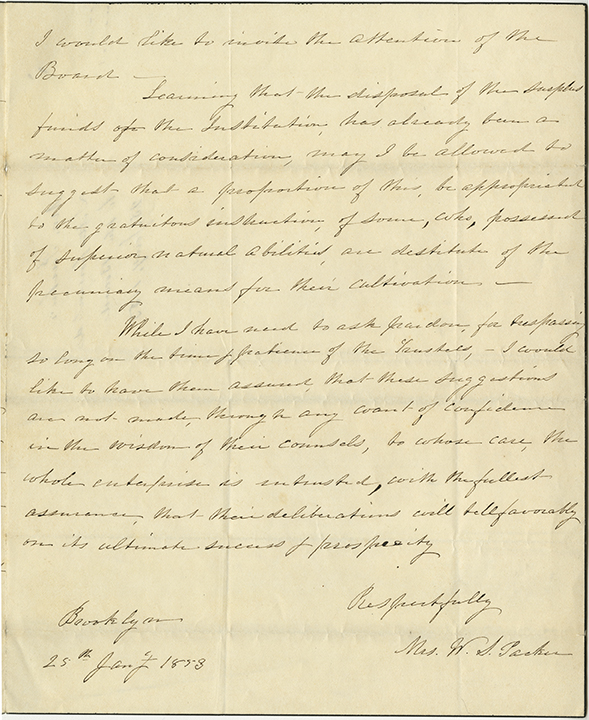 I would like to invite the attention of the
Board —
Learning that the disposal of the surplus
funds of the Institution, has already been a
matter of consideration, may I be allowed to
suggest that a proportion of this, be appropriated
to the gratuitous instruction, of some, who, possessed
of superior natural abilities, are destitute of the
pecuniary means for their cultivation —
While I have need to ask pardon, for trespassing
so long on the time & patience of the Trustees, — I would
like to have them assured, that these suggestions
are not made, through any want of confidence
in the wisdom of their counsels, to whose care, the
whole enterprise is intrusted, with the fullest
assurance, that their deliberations will tell favorably
on its ultimate success & prosperity
Respectfully
Brooklyn
Mrs. W. S. Packer
25th Jany 1853